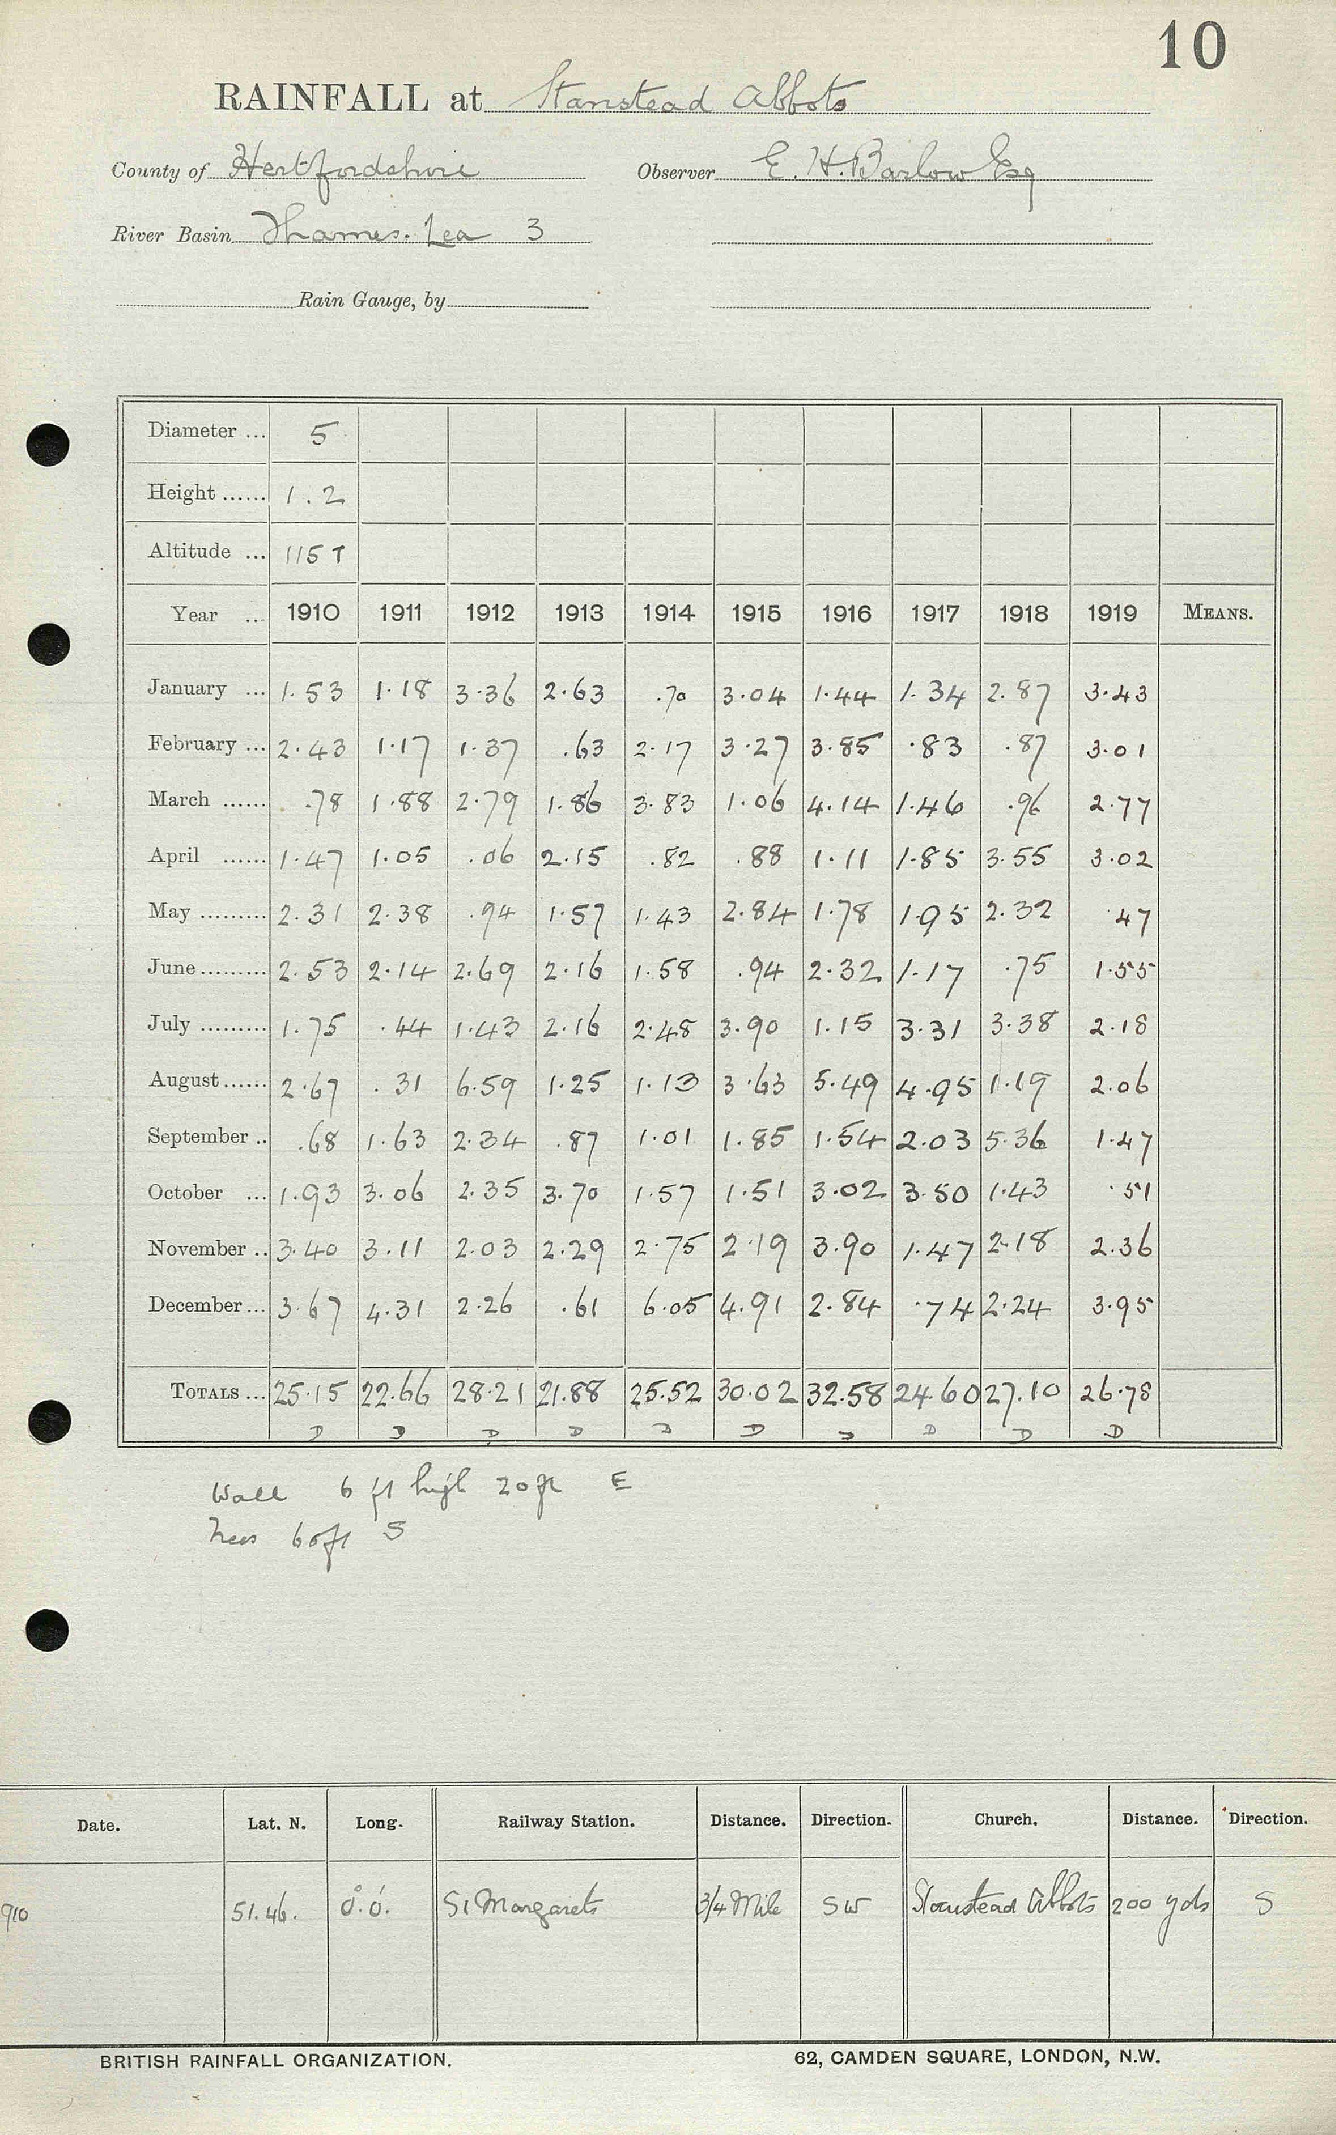 10
RAINFALL at Stanstead Abbots
County of Hertfordshire Observer E. H. Barlow Esq
River Basin Thames. Lea 3
Rain Gauge, by
Diameter ... 5
Height ...... 1.2
Altitude ... 115 T
Year ... 1910 1911 1912 1913 1914 1915 1916 1917 1918 1919 MEANS.
January ... 1.53 1.18 3.36 2.63 .70 3.04 1.44 1.34 2.87 3.43
February ... 2.43 1.17 1.37 .63 2.17 3.27 3.85 .83 .87 3.01
March ...... .78 1.88 2.79 1.86 3.83 1.06 4.14 1.46 .96 2.77
April ...... 1.47 1.05 .06 2.15 .82 .88 1.11 1.85 3.55 3.02
May ......... 2.31 2.38 .94 1.57 1.43 2.84 1.78 1.95 2.32 .47
June ......... 2.53 2.14 2.69 2.16 1.58 .94 2.32 1.17 .75 1.55
July ......... 1.75 .44 1.43 2.16 2.48 3.90 1.15 3.31 3.38 2.18
August ...... 2.67 .31 6.59 1.25 1.13 3.63 5.49 4.95 1.19 2.06
September .. .68 1.63 2.34 .87 1.01 1.85 1.54 2.03 5.36 1.47
October ... 1.93 3.06 2.35 3.70 1.57 1.51 3.02 3.50 1.43 .51
November .. 3.40 3.11 2.03 2.29 2.75 2.19 3.90 1.47 2.18 2.36
December ... 3.67 4.31 2.26 .61 6.05 4.91 2.84 .74 2.24 3.95
TOTALS ... 25.15 22.66 28.21 21.88 25.52 30.02 32.58 24.60 27.10 26.78
D D D D D D D D D D
Wall 6 ft high 20 ft E
Trees 60 ft S
Date. Lat. N. Long. Railway Station. Distance. Direction. Church. Distance. Direction.
910 51.46. 0°.0'. St Margarets 3/4 Mile SW Stanstead Abbots 200 yds S
BRITISH RAINFALL ORGANIZATION. 62, CAMDEN SQUARE, LONDON, N.W.